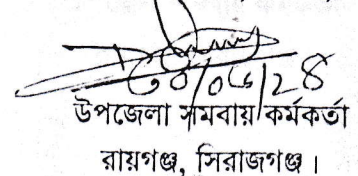 ৩০/০৬/২৪
উপজেলা সমবায় কর্মকর্তা
রায়গঞ্জ, সিরাজগঞ্জ।